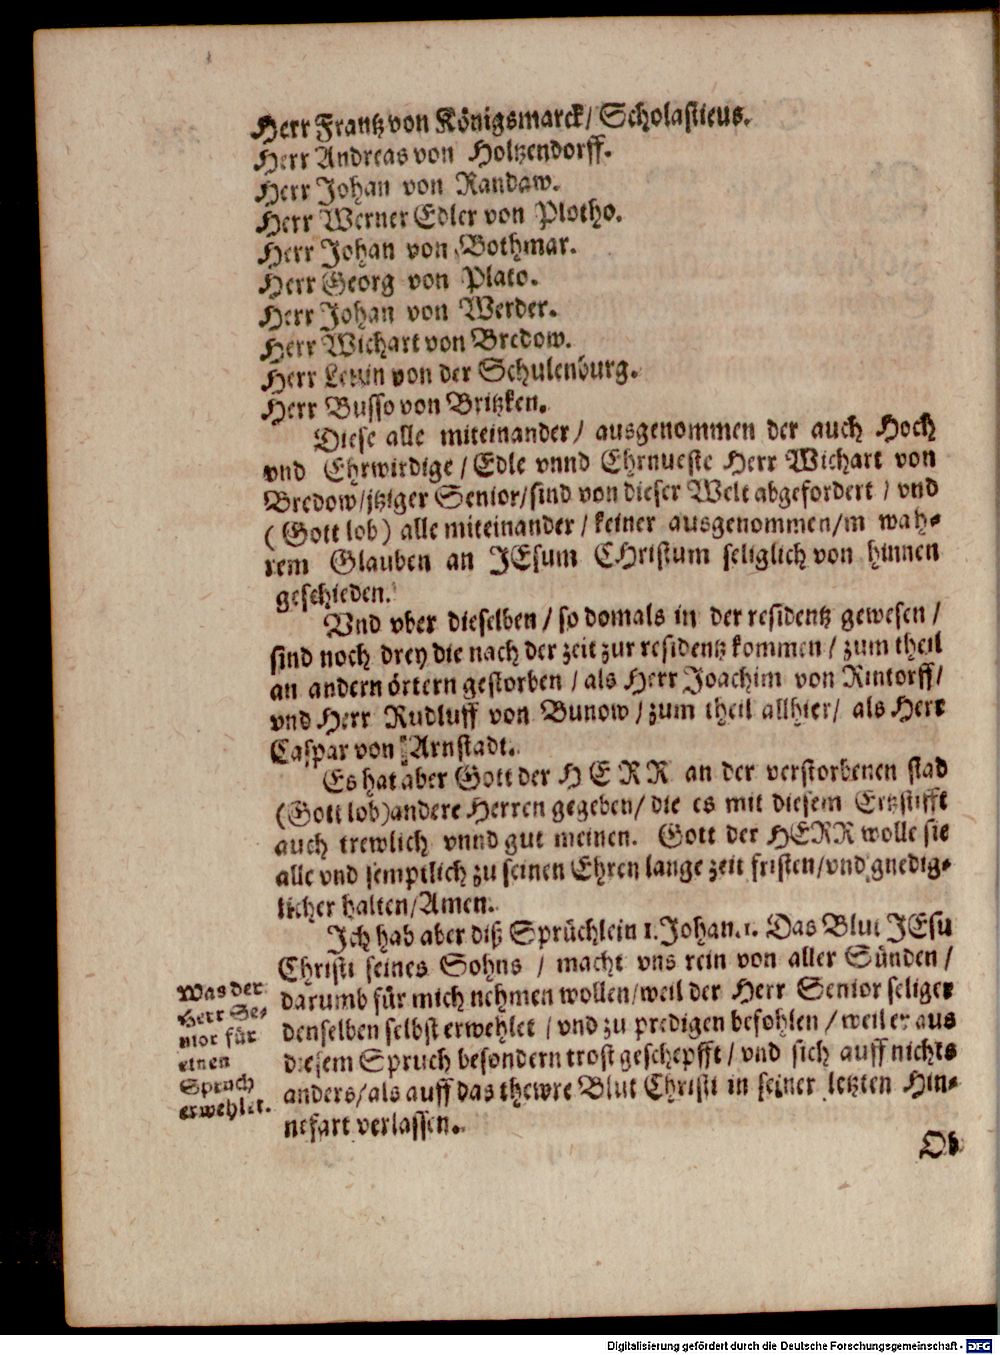 Herr Frantz von Königsmarck/ Scholasticus.
Herr Andreas von Holtzendorff.
Herr Johan von Randaw.
Herr Werner Edler von Plotho.
Herr Johan von Bothmar.
Herr Georg von Plato.
Herr Johan von Werder.
Herr Wichart von Bredow.
Herr Levin von der Schulenburg.
Herr Busso von Britzken.
Diese alle miteinander/ ausgenommen der auch Hoch
vnd Ehrwirdige/ Edle vnnd Ehrnueste Herr Wichart von
Bredow/jtziger Senior/sind von dieser Welt abgefordert / vnd
( Gott lob) alle miteinander / keiner ausgenommen/in wah-
rem Glauben an JEsum CHristum seliglich von hinnen
geschieden.
Vnd vber dieselben / so domals in der residentz gewesen /
sind noch drey die nach der zeit zur residentz kommen / zum theil
an andern örtern gestorben / als Herr Joachim von Rintorff/
vnd Herr Rudluff von Bunow / zum theil allhier/ als Herr
Caspar von Arnstadt.
Es hat aber Gott der HERR an der verstorbenen stad
(Gott lob)andere Herren gegeben/ die es mit diesem Ertzstifft
auch trewlich vnnd gut meinen. Gott der HERR wolle sie
alle vnd semptlich zu seinen Ehren lange zeit fristen/vnd gnedig-
licher halten/Amen.
Ich hab aber diß Sprüchlein 1.Johan.1. Das Blut JEsu
Christi seines Sohns / macht vns rein von aller Sünden /
darumb für mich nehmen wollen/weil der Herr Senior seliger
denselben selbst erwehlet / vnd zu predigen befohlen / weil er aus
diesem Spruch besondern trost geschepfft / vnd sich auff nichts
anders/als auff das thewre Blut Christi in seiner letzten Hin-
nefart verlassen.
Was der
Herr Se-
nior für
einen
Spruch
erwehlet.
Ob